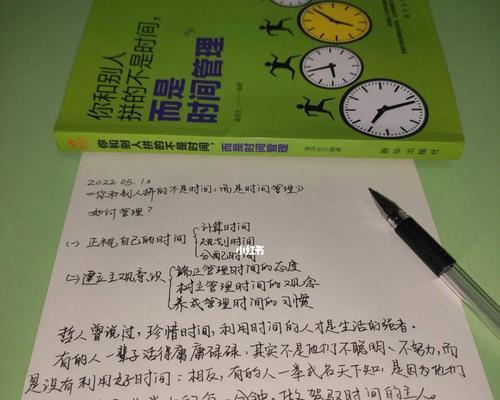 你和别人
拼的不是时间,
而是
时间管理
你和别人拼的不是时间, 而是时间管理
新华出版社
2022.05.10
《你和别人拼的不是时间,而是时间管理》
如何管理?
(一) 正视自己的时间
计算时间
规划时间
分配时间
小红书
(二) 建立主观意识
端正管理时间的态度
树立管理时间的观念
养成管理时间的习惯
哲人曾说过,珍惜时间,利用时间的人才是生活的强者。
有的人一辈子活得庸庸碌碌,其实不是他们不聪明、不努力,而
是没有利用好时间;相反,有的人一举成名天下知,是因为他们
的每一分钟,做驾驭时间的主人。